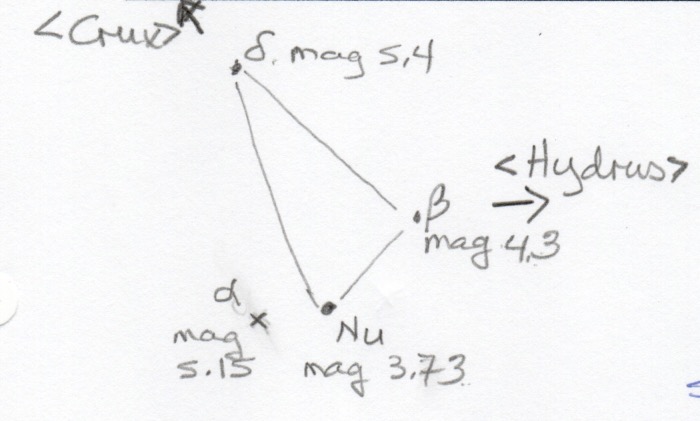 <Crux>
δ. mag 5,4
<Hydrus>
β
mag 4,3
α
mag
5.15
Nu
mag 3,73